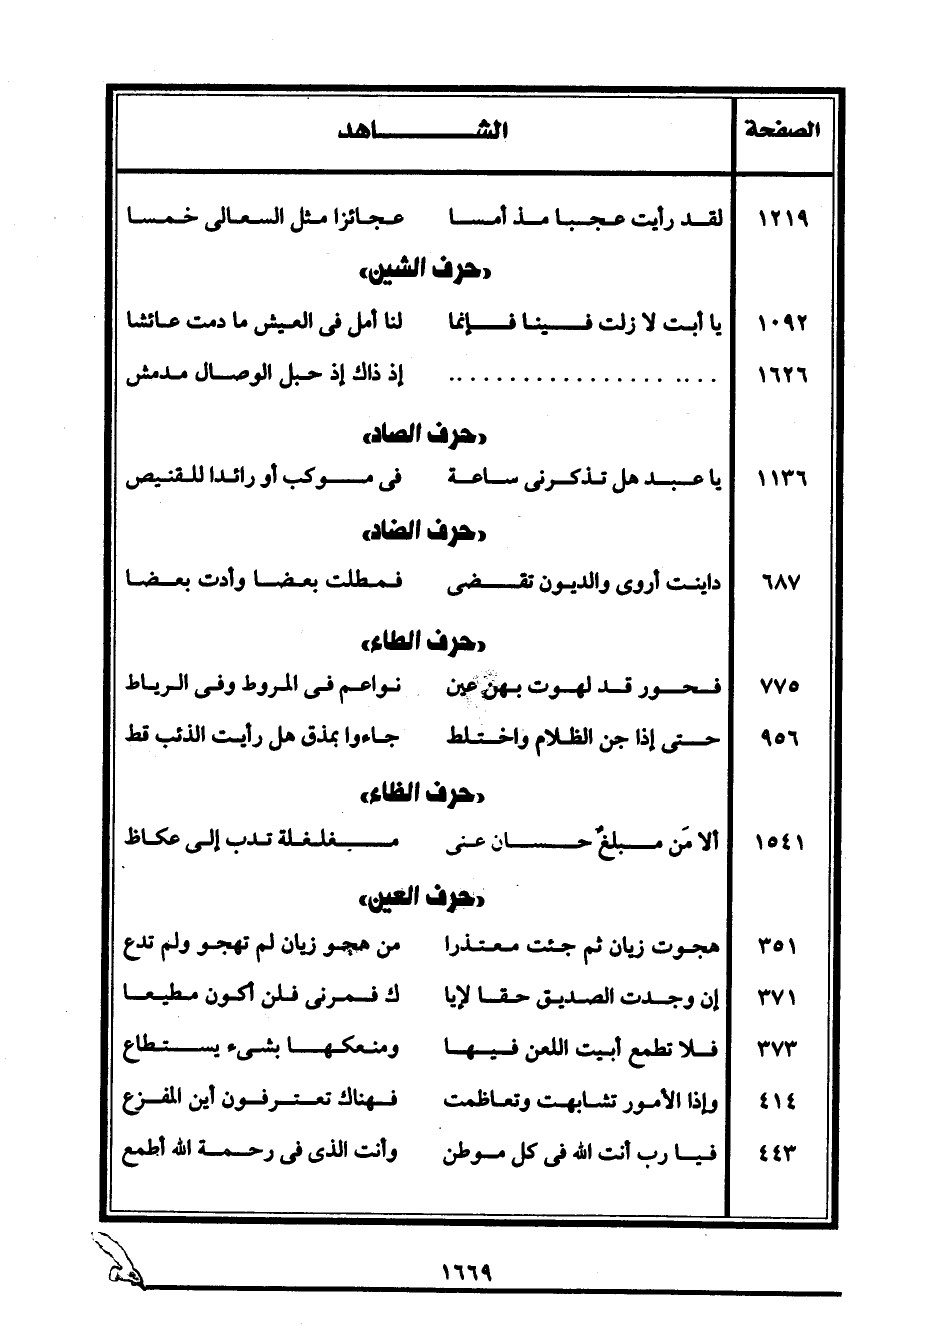 الصفحة الشاهد
١٢١٩ لقد رأيت عجبا مذ أمسا عجائزا مثل السعالى خمسا
«حرف الشين»
١٠٩٢ يا أبت لا زلت فينا فإنما لنا أمل فى العيش ما دمت عائشا
١٦٢٦ .................. إذ ذاك إذ حبل الوصال مدمش
«حرف الصاد»
١١٣٦ يا عبد هل تذكرنى ساعة فى موكب أو رائدا للقنيص
«حرف الضاد»
٦٨٧ داينت أروى والديون تقضى فمطلت بعضا وأدت بعضا
«حرف الطاء»
٧٧٥ فحور قد لهوت بهن عين نواعم فى المروط وفى الرياط
٩٥٦ حتى إذا جن الظلام واختلط جاءوا بمذق هل رأيت الذئب قط
«حرف الظاء»
١٥٤١ ألا مَن مبلغٌ حسان عنى مغلغلة تدب إلى عكاظ
«حرف العين»
٣٥١ هجوت زبان ثم جئت معتذرا من هجو زبان لم تهجو ولم تدع
٣٧١ إن وجدت الصديق حقا لإيا ك فمرنى فلن أكون مطيعا
٣٧٣ فلا تطمع أبيت اللعن فيها ومنعكها بشىء يستطاع
٤١٤ وإذا الأمور تشابهت وتعاظمت فهناك تعترفون أين المفزع
٤٤٣ فيا رب أنت الله فى كل موطن وأنت الذى فى رحمة الله أطمع
١٦٦٩